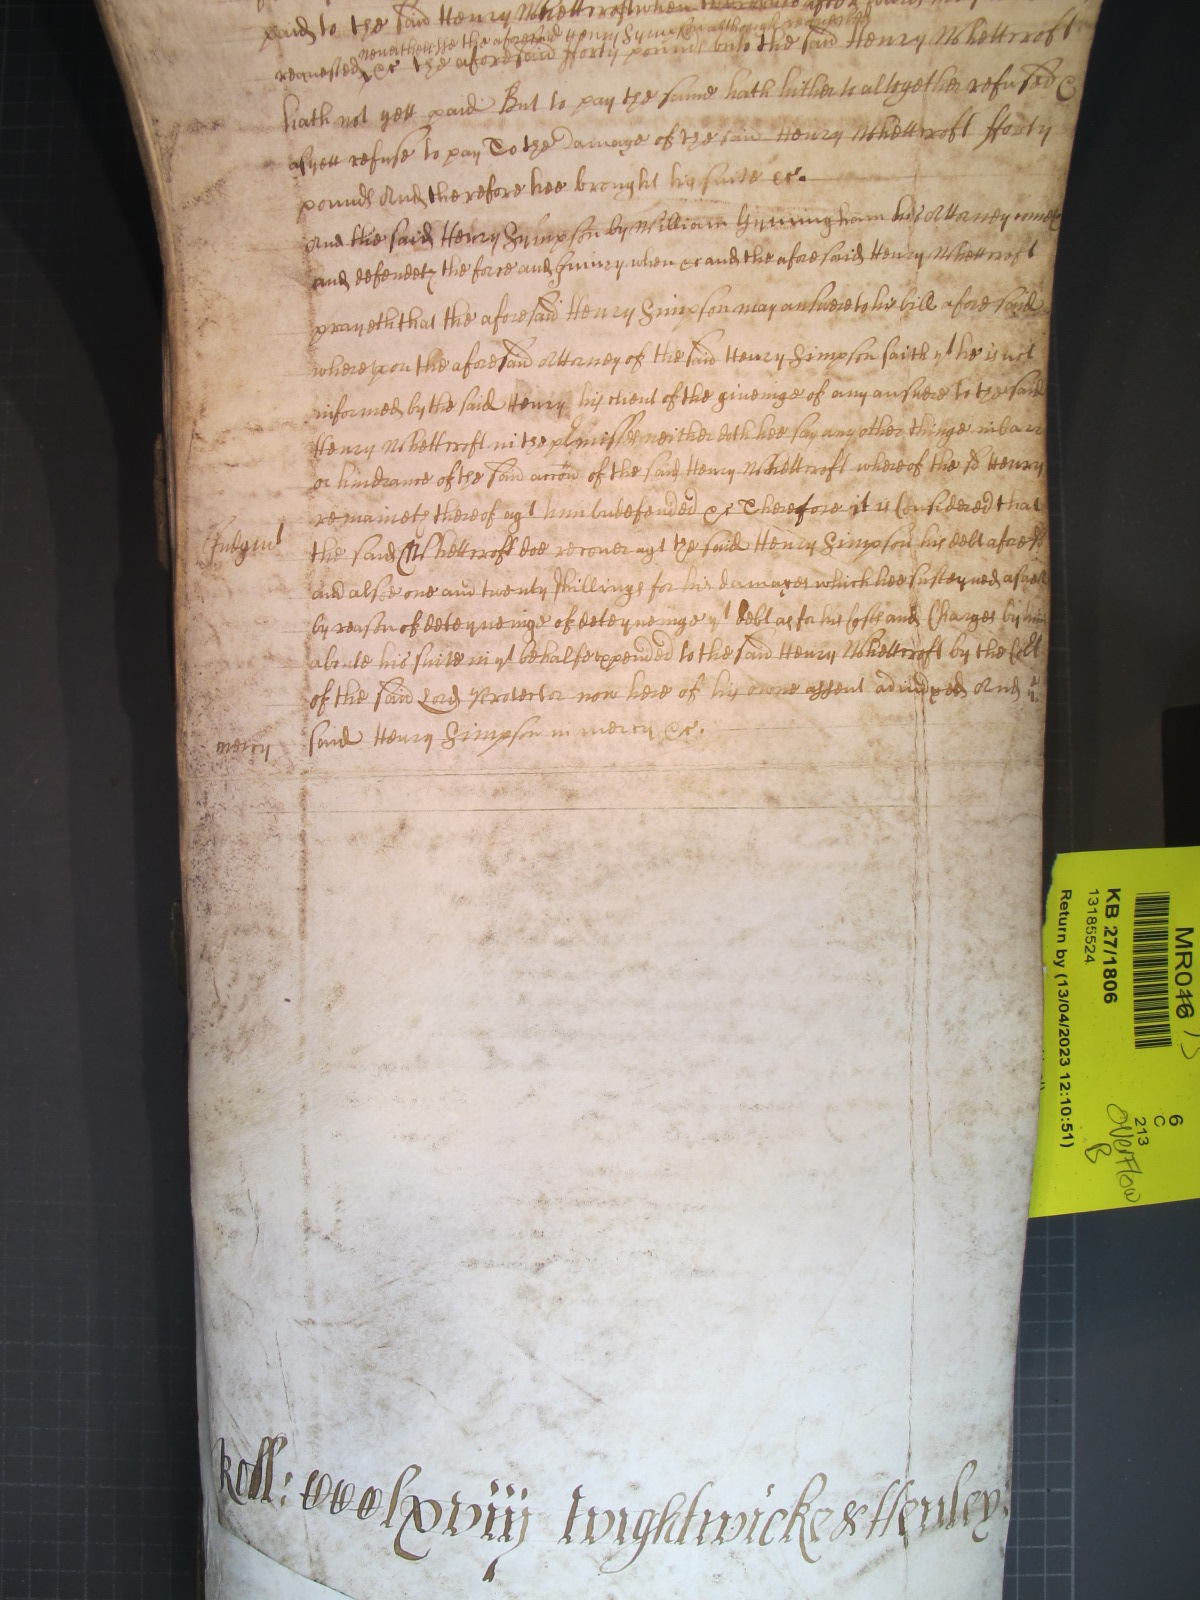 paid to the said Henry Whettcroft when
nevertheles the aforesaid Henry Sympson although requested
requested &c the aforesaid fforty pounds unto the said Henry Whettcroft
hath not yett paid But to pay the same hath hitherto altogether refused &
as yett refuse to pay To the damage of the said Henry Whettcroft fforty
pounds And therefore hee brought his suite &c.
And the said Henry Sympson by William Gyrmingham his Attorney cometh
and defendeth the force and Iniury when &c and the aforesaid Henry Whettcroft
prayeth that the aforesaid Henry Simpson may answere to his bill aforesaid
whereupon the aforesaid Attorney of the said Henry Simpson saith yt he is not
informed by the said Henry his client of the giveinge of any answere to the said
Henry Whettcroft in the pmisses neither doth hee say any other thinge in barr
or hindrance of the said accon of the said Henry Whettcroft whereof the sd Henry
remaineth thereof agt him undefended &c Therefore it is Considered that
Judgmt
the said Whettcroft doe recover agt the said Henry Simpson his debt aforesd
and alsoe one and twenty shillings for his damages which hee susteyned
by reason of deteyneinge of deteyneinge yt debt as for his Costs and Charges by him
aboute his suite in yt behalfe expended to the said Henry Whettcroft by the Cort
of the said Lord Protector now here of his owne assent adiudged And ye
mercy
said Henry Simpson in mercy &c.
Roll: lxviij Wightwicke & Henley:
MR046
KB 27/1806
13185524
Return by (13/04/2023 12:10:51)
6
C
213
OVERFLOW
B